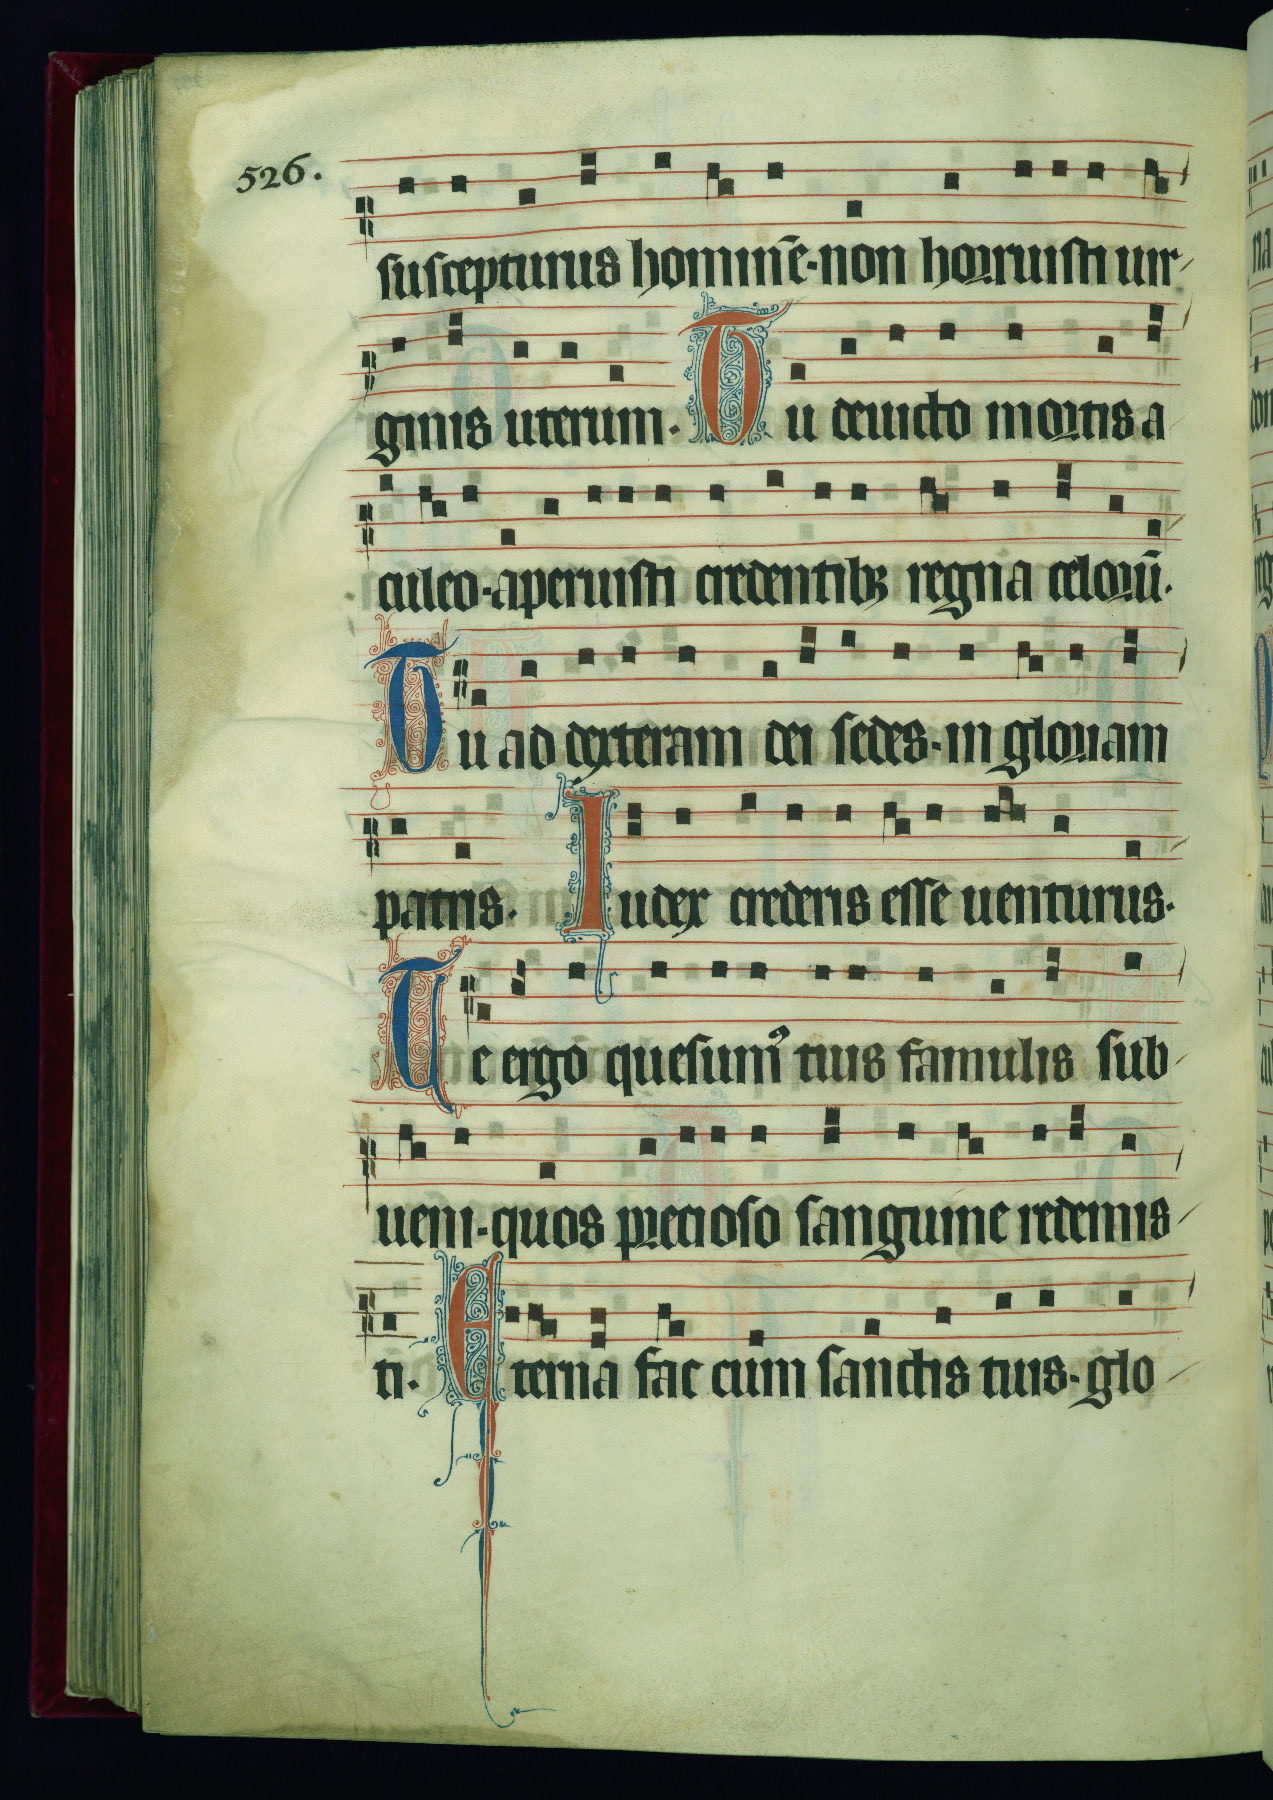 526.
suscepturus homine̅·non horruisti uir-
ginis uterum· Tu deuicto mortis a
culeo·aperuisti credentibꝫ regna celoru̅·
Tu ad dexteram dei sedes·in gloriam
patris· Iudex crederis esse uenturus·
Te ergo quesumꝰ tuis famulis sub-
ueni·quos precioso sanguine redemis-
ti· Eterna fac cum sanctis tuis·glo-